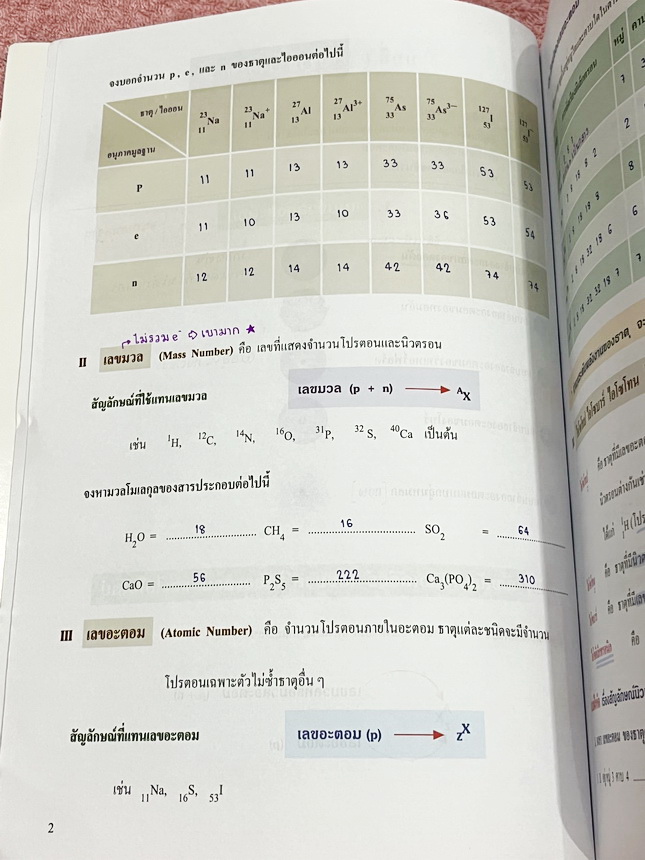 จงบอกจำนวน p, e, และ n ของธาตุและไอออนต่อไปนี้
ธาตุ / ไอออน
อนุภาคมูลฐาน
²³₁₁Na ²³₁₁Na⁺ ²⁷₁₃Al ²⁷₁₃Al³⁺ ⁷⁵₃₃As ⁷⁵₃₃As³⁻ ¹²⁷₅₃I ¹²⁷₅₃I⁻
P 11 11 13 13 33 33 53 53
e 11 10 13 10 33 36 53 54
n 12 12 14 14 42 42 74 74
ไม่รวม e⁻ ⇨ เบามาก ★
II เลขมวล (Mass Number) คือ เลขที่แสดงจำนวนโปรตอนและนิวตรอน
สัญลักษณ์ที่ใช้แทนเลขมวล เลขมวล (p + n) → ᴬX
เช่น ¹H, ¹²C, ¹⁴N, ¹⁶O, ³¹P, ³²S, ⁴⁰Ca เป็นต้น
จงหามวลโมเลกุลของสารประกอบต่อไปนี้
H₂O = 18 CH₄ = 16 SO₂ = 64
CaO = 56 P₂S₅ = 222 Ca₃(PO₄)₂ = 310
III เลขอะตอม (Atomic Number) คือ จำนวนโปรตอนภายในอะตอม ธาตุแต่ละชนิดจะมีจำนวน
โปรตอนเฉพาะตัวไม่ซ้ำธาตุอื่น ๆ
สัญลักษณ์ที่แทนเลขอะตอม เลขอะตอม (p) → zX
เช่น ₁₁Na, ₁₆S, ₅₃I
2